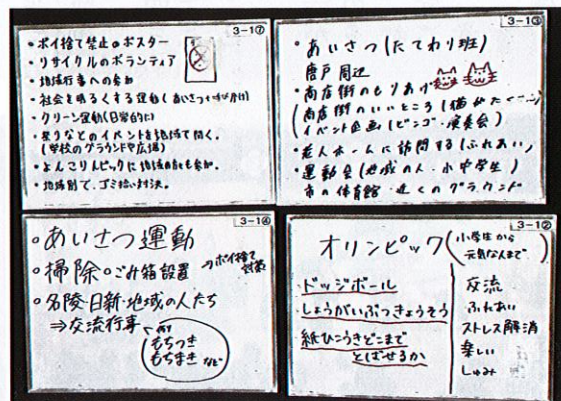 3-1⑦
・ポイ捨て禁止のポスター
・リサイクルのボランティア
・地域行事への参加
・社会を明るくする運動(あいさつを呼び掛け)
・クリーン運動(日常的に)
・祭りなどのイベントを地域で開く。
(学校のグラウンドや広場)
・よんこりんピックに地域の方も参加。
・地域別で、ゴミ拾い対決。
3-1③
・あいさつ(たてわり班)
唐戸周辺
・商店街のもりあげ
(商店街のいいところ(猫がたくさん)
イベント企画(ビンゴ・演奏会)
・老人ホームに訪問する(ふれあい)
・運動会(地域の人・小中学生)
市の体育館・近くのグラウンド
3-1④
・あいさつ運動
・掃除・ごみ箱設置 →ポイ捨て対策
・名陵・日新・地域の人たち
⇒交流行事
例す
もちつき
もちまき など
3-1②
オリンピック(小学生から
元気な人まで)
・ドッジボール
・しょうがいぶつきょうそう
・紙ひこうきどこまで
とばせるか
交流
ふれあい
ストレス解消
楽しい
しゅみ